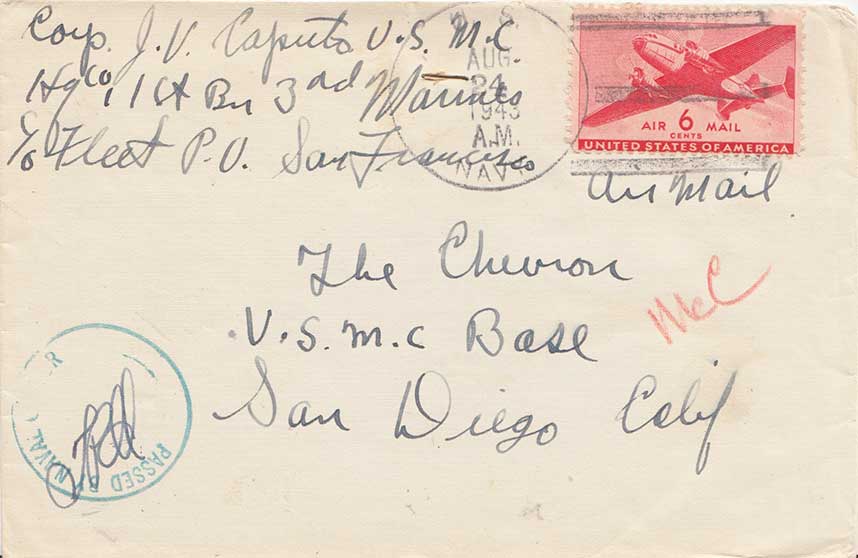 Corp. J. V. Caputo U.S.M.C
Hq Co, 1st Bn 3rd Marines
c/o Fleet P.O. San Francisco
U.S.
AUG.
24
1943
A.M.
NAVY
AIR 6 MAIL
CENTS
UNITED STATES OF AMERICA
Air Mail
The Chevron
U.S.M.C Base
San Diego Calif
McC
PASSED B NAVAL R